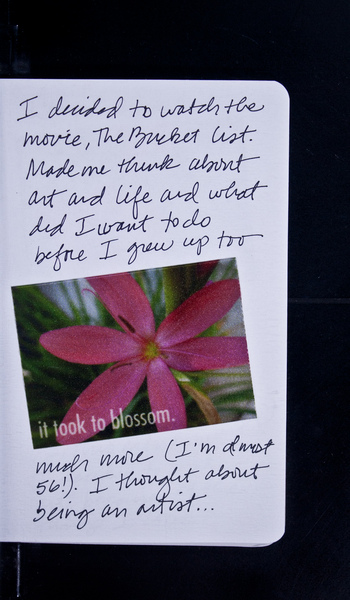 I decided to watch the
movie, The Bucket List.
Made me think about
art and life and what
did I want to do
before I grew up too
it took to blossom.
much more (I'm almost
56!). I thought about
being an artist...